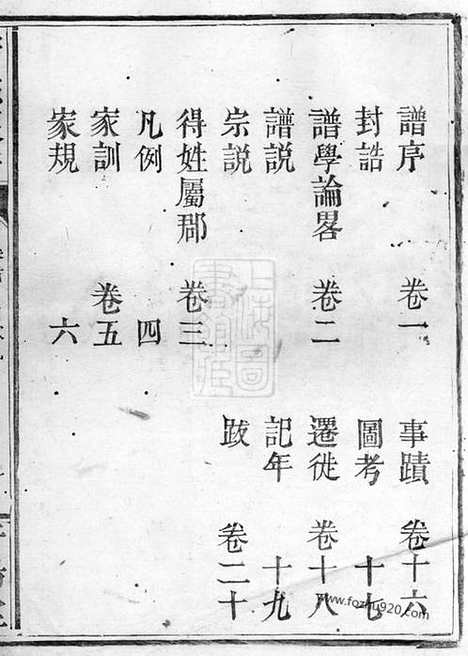 譜序 卷一 事蹟 卷十六
封誥 圖考 十七
譜學論畧 卷二 遷徙 卷十八
譜説 記年 十九
宗説 跋 卷二十
得姓屬郡 卷三
凡例 四
家訓 卷五
家規 六
上海圖書館藏
www.fozhu920.com